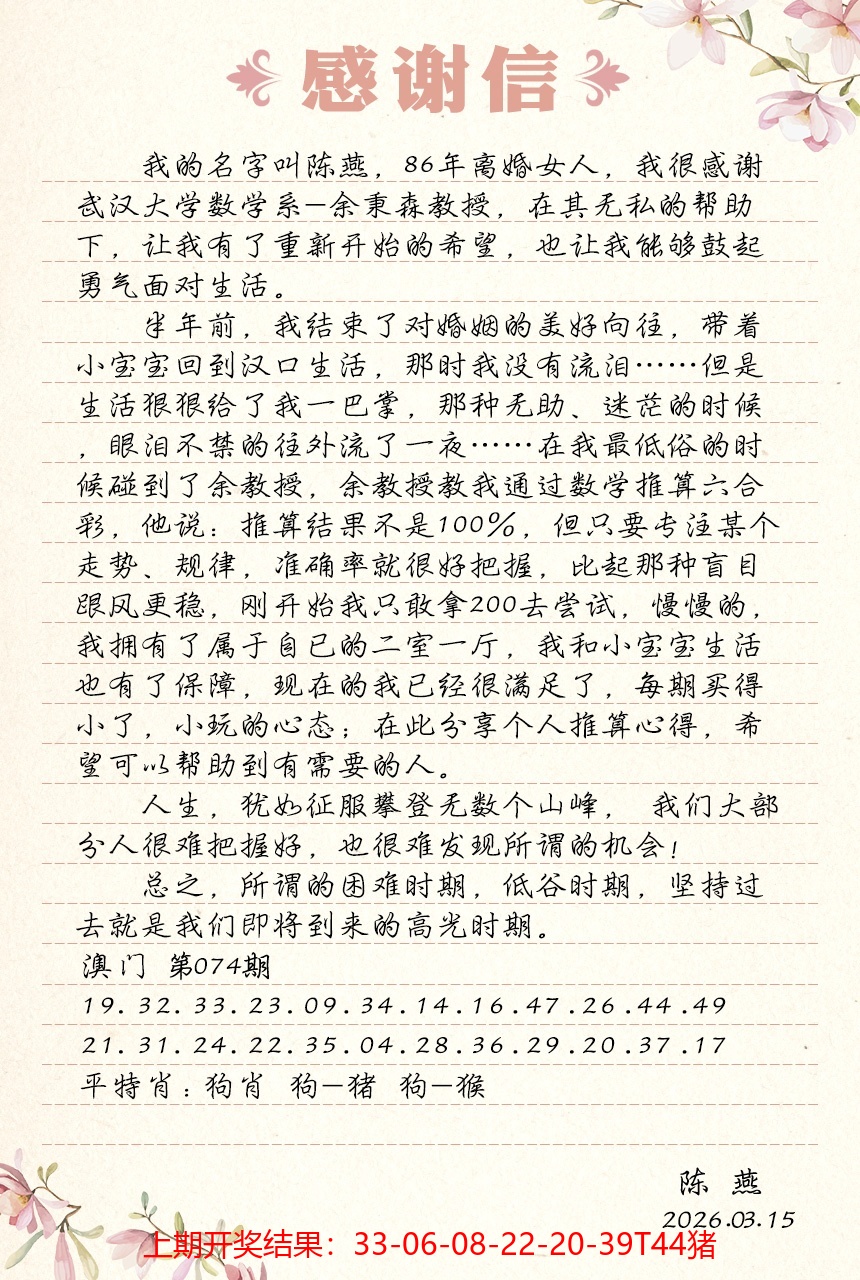 感谢信
我的名字叫陈燕，86年离婚女人，我很感谢
武汉大学数学系—余秉森教授，在其无私的帮助
下，让我有了重新开始的希望，也让我能够鼓起
勇气面对生活。
半年前，我结束了对婚姻的美好向往，带着
小宝宝回到汉口生活，那时我没有流泪……但是
生活狠狠给了我一巴掌，那种无助、迷茫的时候
，眼泪不禁的往外流了一夜……在我最低俗的时
候碰到了余教授，余教授教我通过数学推算六合
彩，他说：推算结果不是100%，但只要专注某个
走势、规律，准确率就很好把握，比起那种盲目
跟风更稳，刚开始我只敢拿200去尝试，慢慢的，
我拥有了属于自已的二室一厅，我和小宝宝生活
也有了保障，现在的我已经很满足了，每期买得
小了，小玩的心态；在此分享个人推算心得，希
望可以帮助到有需要的人。
人生，犹如征服攀登无数个山峰， 我们大部
分人很难把握好，也很难发现所谓的机会！
总之，所谓的困难时期，低谷时期，坚持过
去就是我们即将到来的高光时期。
澳门 第074期
19.32.33.23.09.34.14.16.47.26.44.49
21.31.24.22.35.04.28.36.29.20.37.17
平特肖：狗肖 狗—猪 狗—猴
陈 燕
2026.03.15
上期开奖结果：33-06-08-22-20-39T44猪